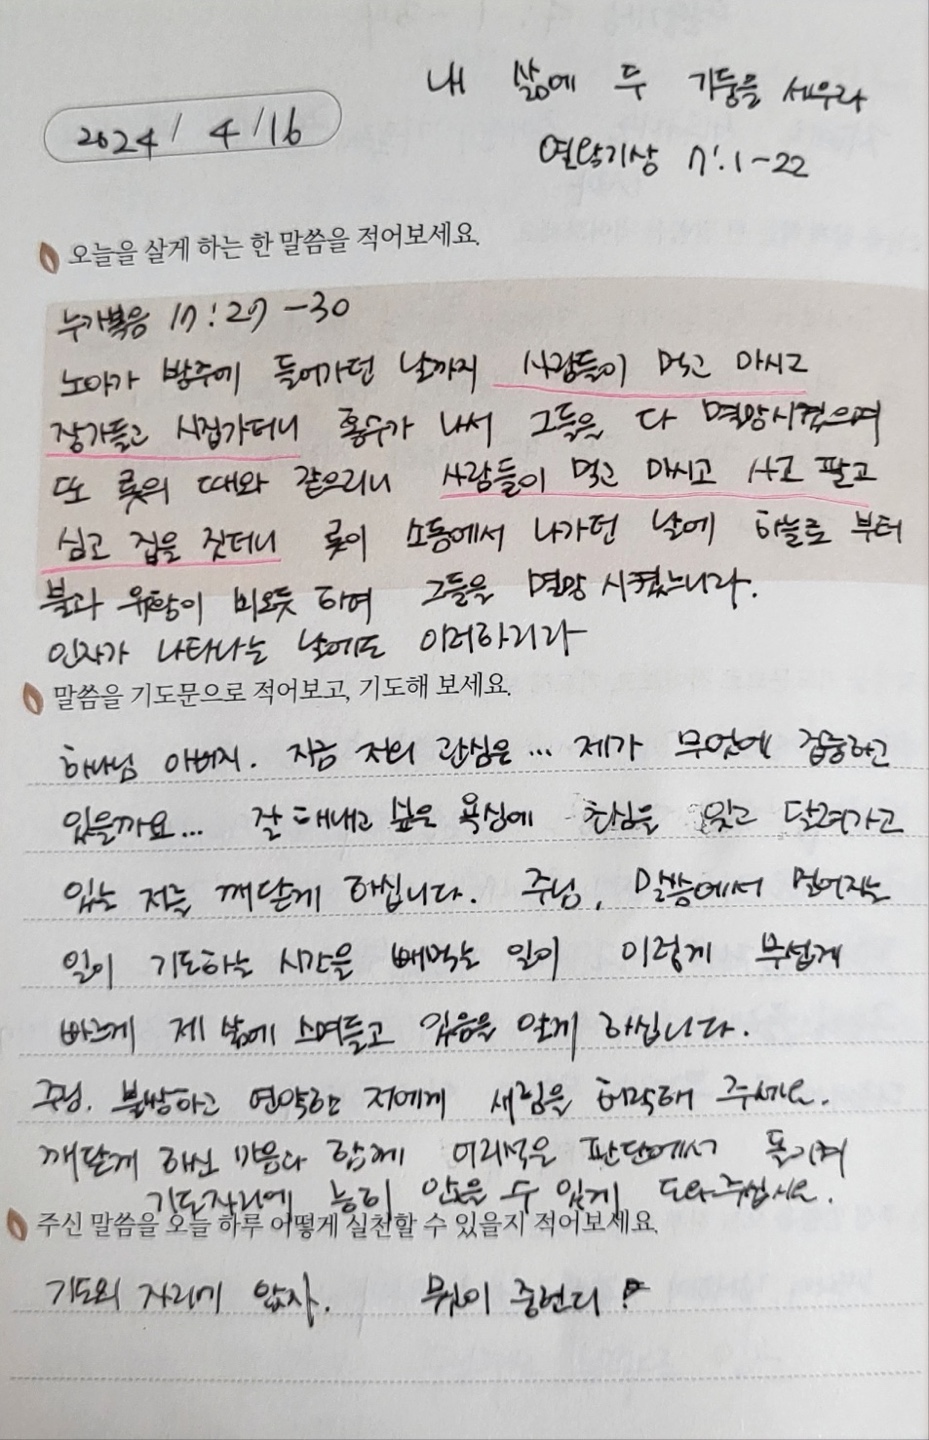 내 삶에 두 기둥을 세우라
2024/ 4/16
열왕기상 7:1-22
오늘을 살게 하는 한 말씀을 적어보세요.
누가복음 17:27-30
노아가 방주에 들어가던 날까지 사람들이 먹고 마시고
장가들고 시집가더니 홍수가 나서 그들을 다 멸망시켰으며
또 롯의 때와 같으리니 사람들이 먹고 마시고 사고 팔고
심고 집을 짓더니 롯이 소돔에서 나가던 날에 하늘로 부터
불과 유황이 비오듯 하여 그들을 멸망 시켰느니라.
인자가 나타나는 날에도 이러하리라
말씀을 기도문으로 적어보고, 기도해 보세요.
하나님 아버지. 지금 저의 관심은... 제가 무엇에 집중하고
있을까요... 잘 해내고 싶은 욕심에 한심을 잊고 달려가고
있는 저를 깨닫게 하십니다. 주님, 말씀에서 멀어지는
일이 기도하는 시간을 빼먹는 일이 이렇게 무섭게
빠르게 제 삶에 스며들고 있음을 알게 하십니다.
주님. 불쌍하고 연약한 저에게 새힘을 허락해 주세요.
깨닫게 하신 마음과 함께 어리석은 판단에서 돌이켜
기도자리에 능히 앉을 수 있게 도와주십시요.
주신 말씀을 오늘 하루 어떻게 실천할 수 있을지 적어보세요.
기도의 자리에 앉자. 뭐이 중헌디?